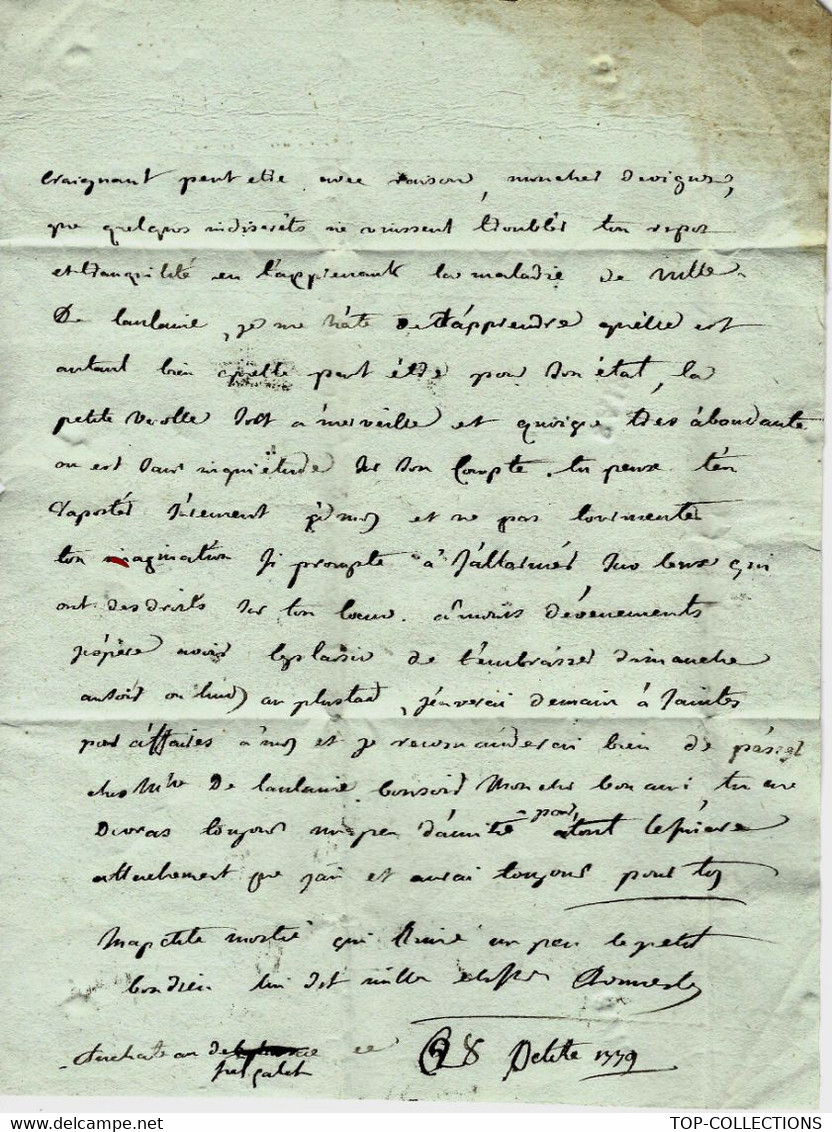 Craignant peut etre avec raison, moncher devignes,
que quelques indiscrèts ne vinssent troublér ton repos
et tranquilité en t'apprenant la maladie de Mlle
De laulanie, je me hâte de t'apprendre quélle est
autant bien quelle peut étre pour son état, la
petite verolle sort a merveille et quoique tres abondante
on est sans inquiétude sur son Compte. tu peux t'en
raportér surement à moy et ne pas tourmenter
ton imagination si prompte a s'allarmér sur ceux qui
ont des droits sur ton coeur. a moins d'évenements
j'éspère avoir leplaisir de t'embrasser dimanche
au soir ou lundy au plustard, j'enverai demain à saintes
pour affaires a moy et je recomanderai bien de passer
chez Mlle De laulanie. bonsoir Moncher bon ami, tu me
Devras toujours un peu d'amitié pour tout le sincère
attachement que j'ai et aurai toujours pour toy
Ma petite moitié qui t'aime un peu le petit
bondieu lui dit mille
Au chateau de ce 8 1779
TOP-COLLECTIONS